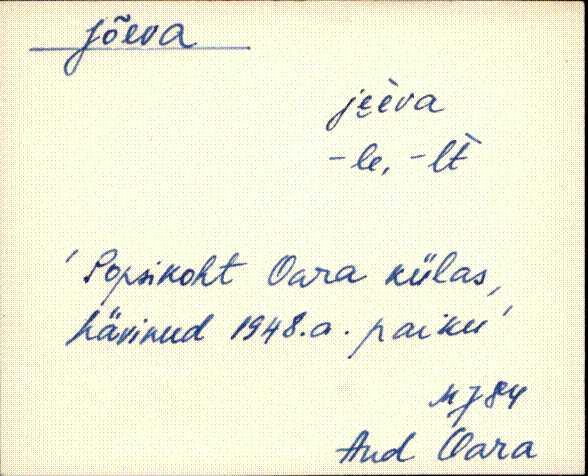 jõeva
je̮è̮va
-le, -lt̀
'Popsikoht Oara külas,
hävinud 1948.a. paiku'
MJ 84
Aud Oara